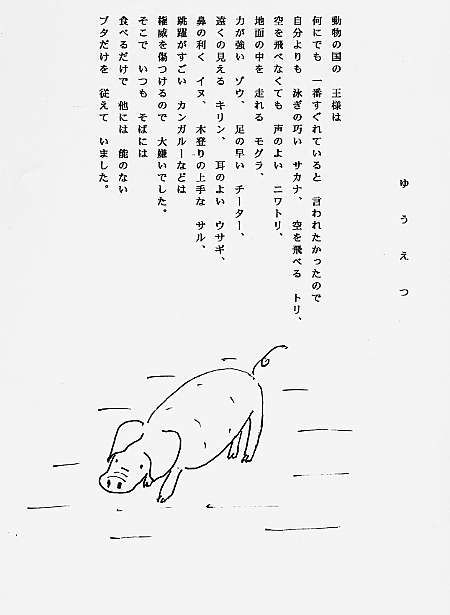 ゆうえつ
動物の国の 王様は
何にでも 一番すぐれていると 言われたかったので
自分よりも 泳ぎの巧い サカナ、 空を飛べる トリ、
空を飛べなくても 声のよい ニワトリ、
地面の中を 走れる モグラ、
力が強い ゾウ、 足の早い チーター、
遠くの見える キリン、 耳のよい ウサギ、
鼻の利く イヌ、 木登りの上手な サル、
跳躍がすごい カンガルーなどは
権威を傷つけるので 大嫌いでした。
そこで いつも そばには
食べるだけで 他には 能のない
ブタだけを 従えて いました。